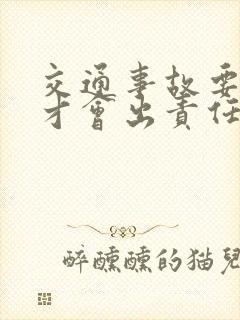 交通事故要
才會出責任
醉醺醺的猫兒